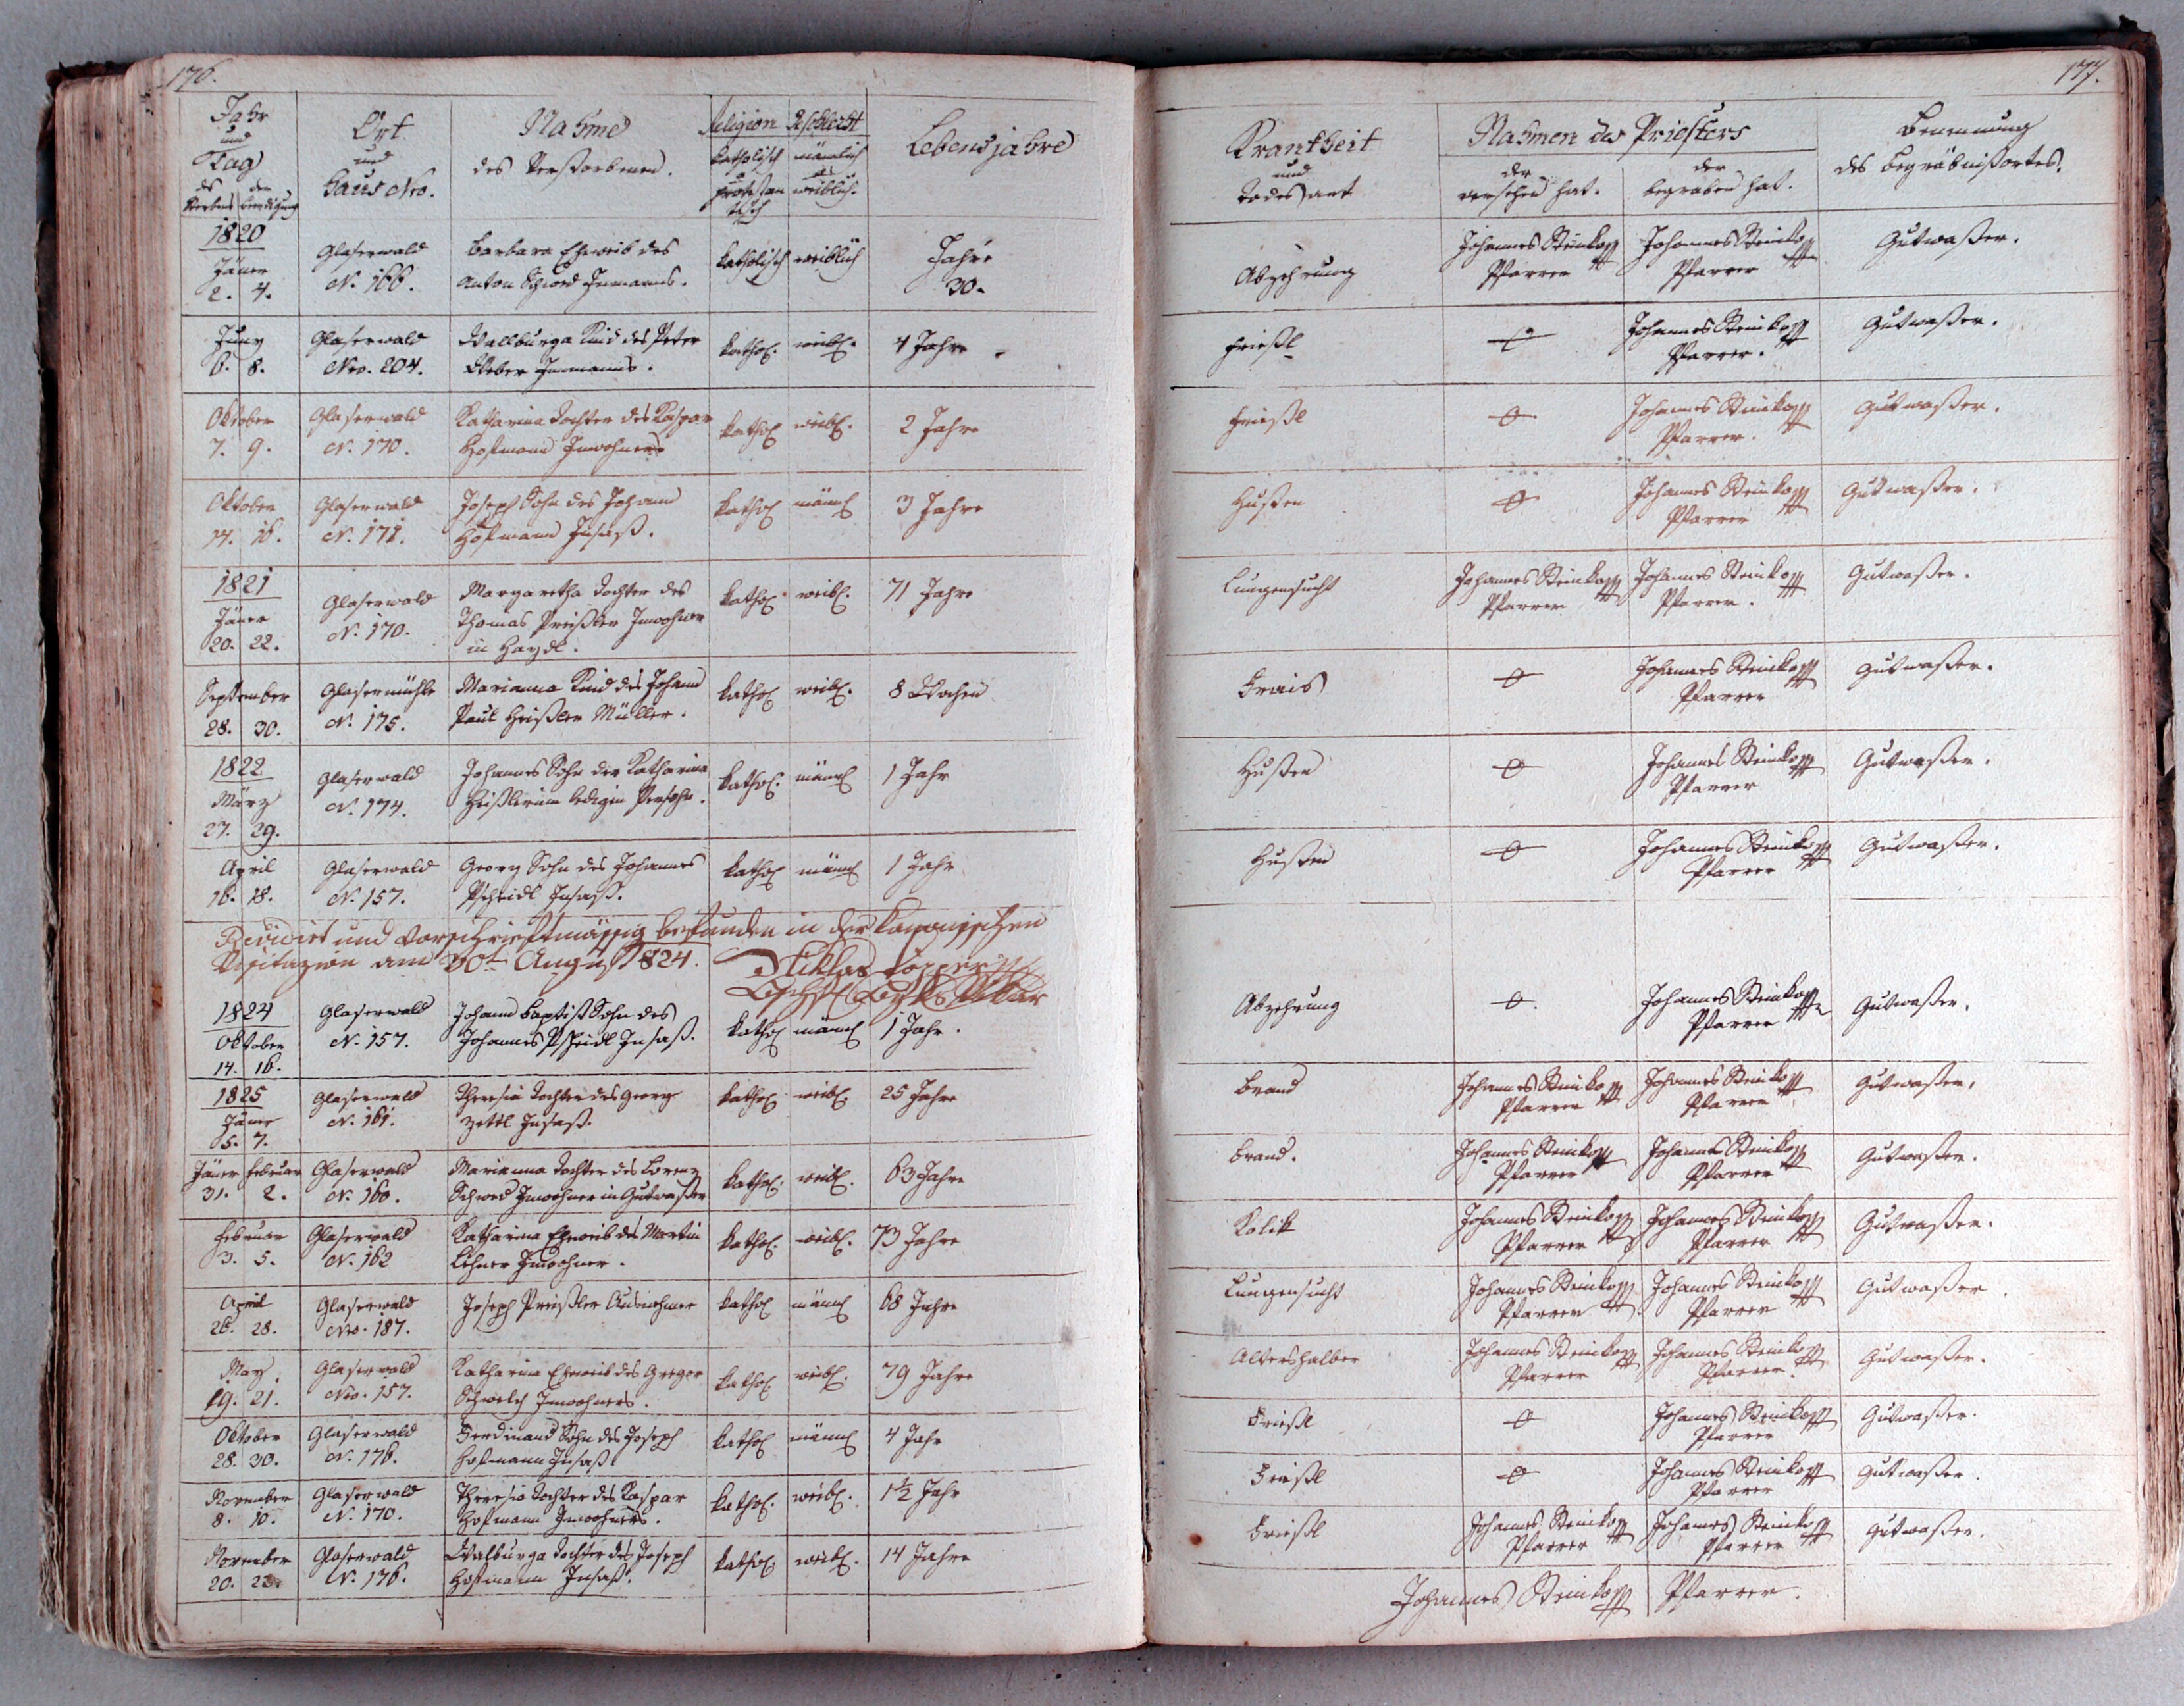 176.
Jahr und Tag des Sterbens der Beerdigung
Ort und Haus Nro.
Nahme des Verstorbenen.
Religion katholisch protestantisch
Geschlecht mänlich weiblich.
Lebensjahre
1820 Jäner 2. 4. Glaserwald N. 166. Barbara Eheweib des Anton Schred Inmanns. katholisch weiblich Jahre 30.
Juny 6. 8. Glaserwald Nro. 204. Wallburga Kind des Peter Weber Inmanns. kathol. weibl. 4 Jahre
Oktober 7. 9. Glaserwald N. 170. Katharina Tochter des Kaspar Hofmann Inwohners kathol weibl. 2 Jahre
Oktober 14. 16. Glaserwald N. 171. Joseph Sohn des Johann Hofmann Insaß. kathol männl 3 Jahre
1821 Jäner 20. 22. Glaserwald N. 170. Margaretha Tochter des Thomas Preißler Inwohner in Haydl. kathol weibl. 71 Jahre
September 28. 30. Glasermühle N. 175. Marianna Kind des Johann Paul Heißler Müller. kathol weibl. 8 Wochen
1822 März 27. 29. Glaserwald N. 174. Johannes Sohn der Katharina Heißlerinn ledigen Persohn. kathol. männl 1 Jahr
April 16. 18. Glaserwald N. 157. Georg Sohn des Johannes Pscheidl Insaß. kathol männl 1 Jahr
Revidirt und vorschriftmässig befunden in der kanonischen
Visitazion am 30t August 1824. Niklas
Vikär
1824 Oktober 14. 16. Glaserwald N. 157. Johann Baptist Sohn des Johannes Pscheidl Insaß. kathol männl 1 Jahr.
1825 Jäner 5. 7. Glaserwald N. 161. Theresia Tochter des Georg Zettl Insaß. kathol weibl. 25 Jahre
Jäner 31. Februar 2. Glaserwald N. 160. Marianna Tochter des Lorenz Schred Inwohner in Gutwasser kathol. weibl. 63 Jahre
Februar 3. 5. Glaserwald N. 162 Katharina Eheweib des Martin Lehner Inwohner. kathol. weibl. 73 Jahre
April 26. 28. Glaserwald Nro. 187. Joseph Preißler Ausnehmer kathol männl 68 Jahre
May 19. 21. Glaserwald Nro. 157. Katharina Eheweib des Gregor Inwohners. kathol. weibl. 79 Jahre
Oktober 28. 30. Glaserwald N. 176. Ferdinand Sohn des Joseph Hofmann Insaß. kathol männl 4 Jahr
November 8. 10. Glaserwald N. 170. Theresia Tochter des Kaspar Hofmann Inwohners. kathol. weibl. 1½ Jahr
November 20. 22. Glaserwald N. 176. Walburga Tochter des Joseph Hofmann Insaß. kathol. weibl. 14 Jahre
177.
Krankheit und Todesart
Nahmen des Priesters
der versehen hat.
der begraben hat.
Benennung des Begräbnißortes.
Abzehrung Johannes Steinko Pfarrer Johannes Steinko Pfarrer Gutwaßer.
Frießl Johannes Steinko Pfarrer. Gutwaßer.
Frießl Johannes Steinko Pfarrer. Gutwaßer.
Husten Johannes Steinko Pfarrer Gutwaßer.
Lungensucht Johannes Steinko Pfarrer Johannes Steinko Pfarrer. Gutwaßer.
Frais Johannes Steinko Pfarrer Gutwaßer.
Husten Johannes Steinko Pfarrer Gutwaßer.
Husten Johannes Steinko Pfarrer Gutwaßer.
Abzehrung Johannes Steinko Pfarrer Gutwaßer.
Brand Johannes Steinko Pfarrer Johannes Steinko Pfarrer Gutwaßer.
Brand. Johannes Steinko Pfarrer Johannes Steinko Pfarrer Gutwaßer.
Kolik Johannes Steinko Pfarrer Johannes Steinko Pfarrer Gutwaßer.
Lungensucht Johannes Steinko Pfarrer Johannes Steinko Pfarrer Gutwaßer.
Altershalber Johannes Steinko Pfarrer Johannes Steinko Pfarrer. Gutwaßer.
Frießl Johannes Steinko Pfarrer Gutwaßer.
Frießl Johannes Steinko Pfarrer Gutwaßer.
Frießl Johannes Steinko Pfarrer Johannes Steinko Pfarrer Gutwaßer.
Johannes Steinko Pfarrer.